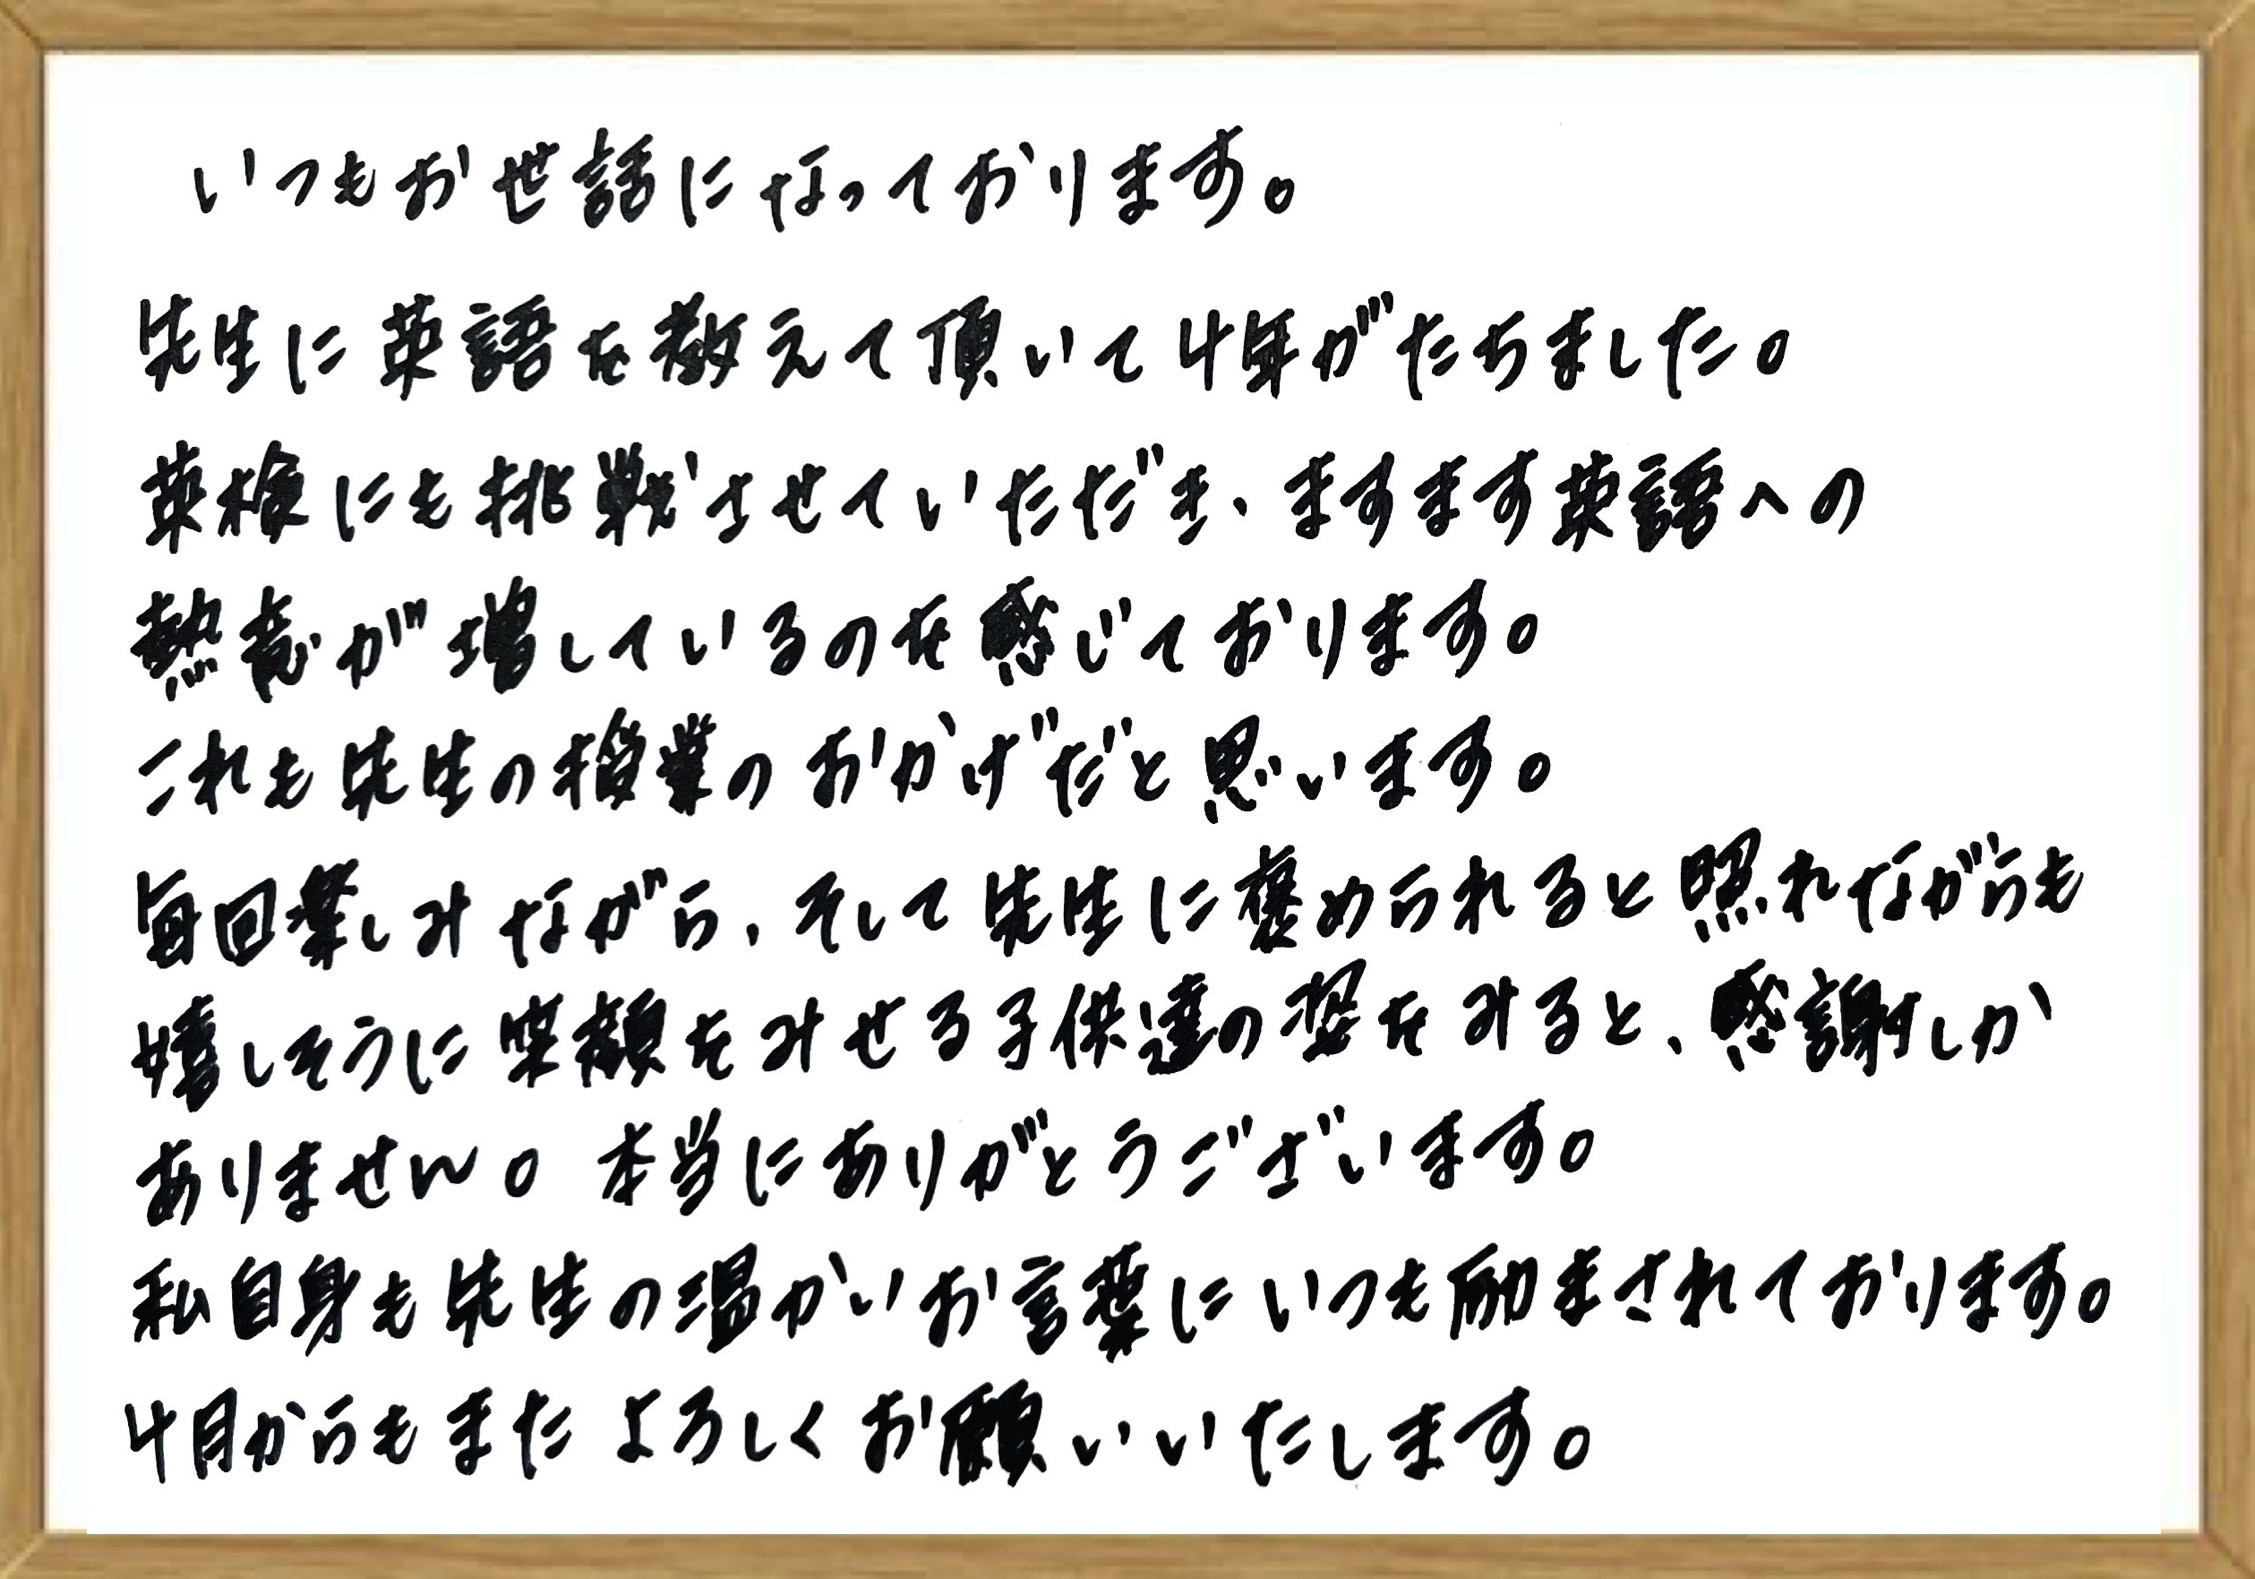 いつもお世話になっております。
先生に英語を教えて頂いて4年がたちました。
英検にも挑戦させていただき、ますます英語への
熱意が増しているのを感じております。
これも先生の授業のおかげだと思います。
毎回楽しみながら、そして先生に褒められると照れながらも
嬉しそうに笑顔をみせる子供達の姿をみると、感謝しか
ありません。本当にありがとうございます。
私自身も先生の温かいお言葉にいつも励まされております。
4月からもまたよろしくお願いいたします。